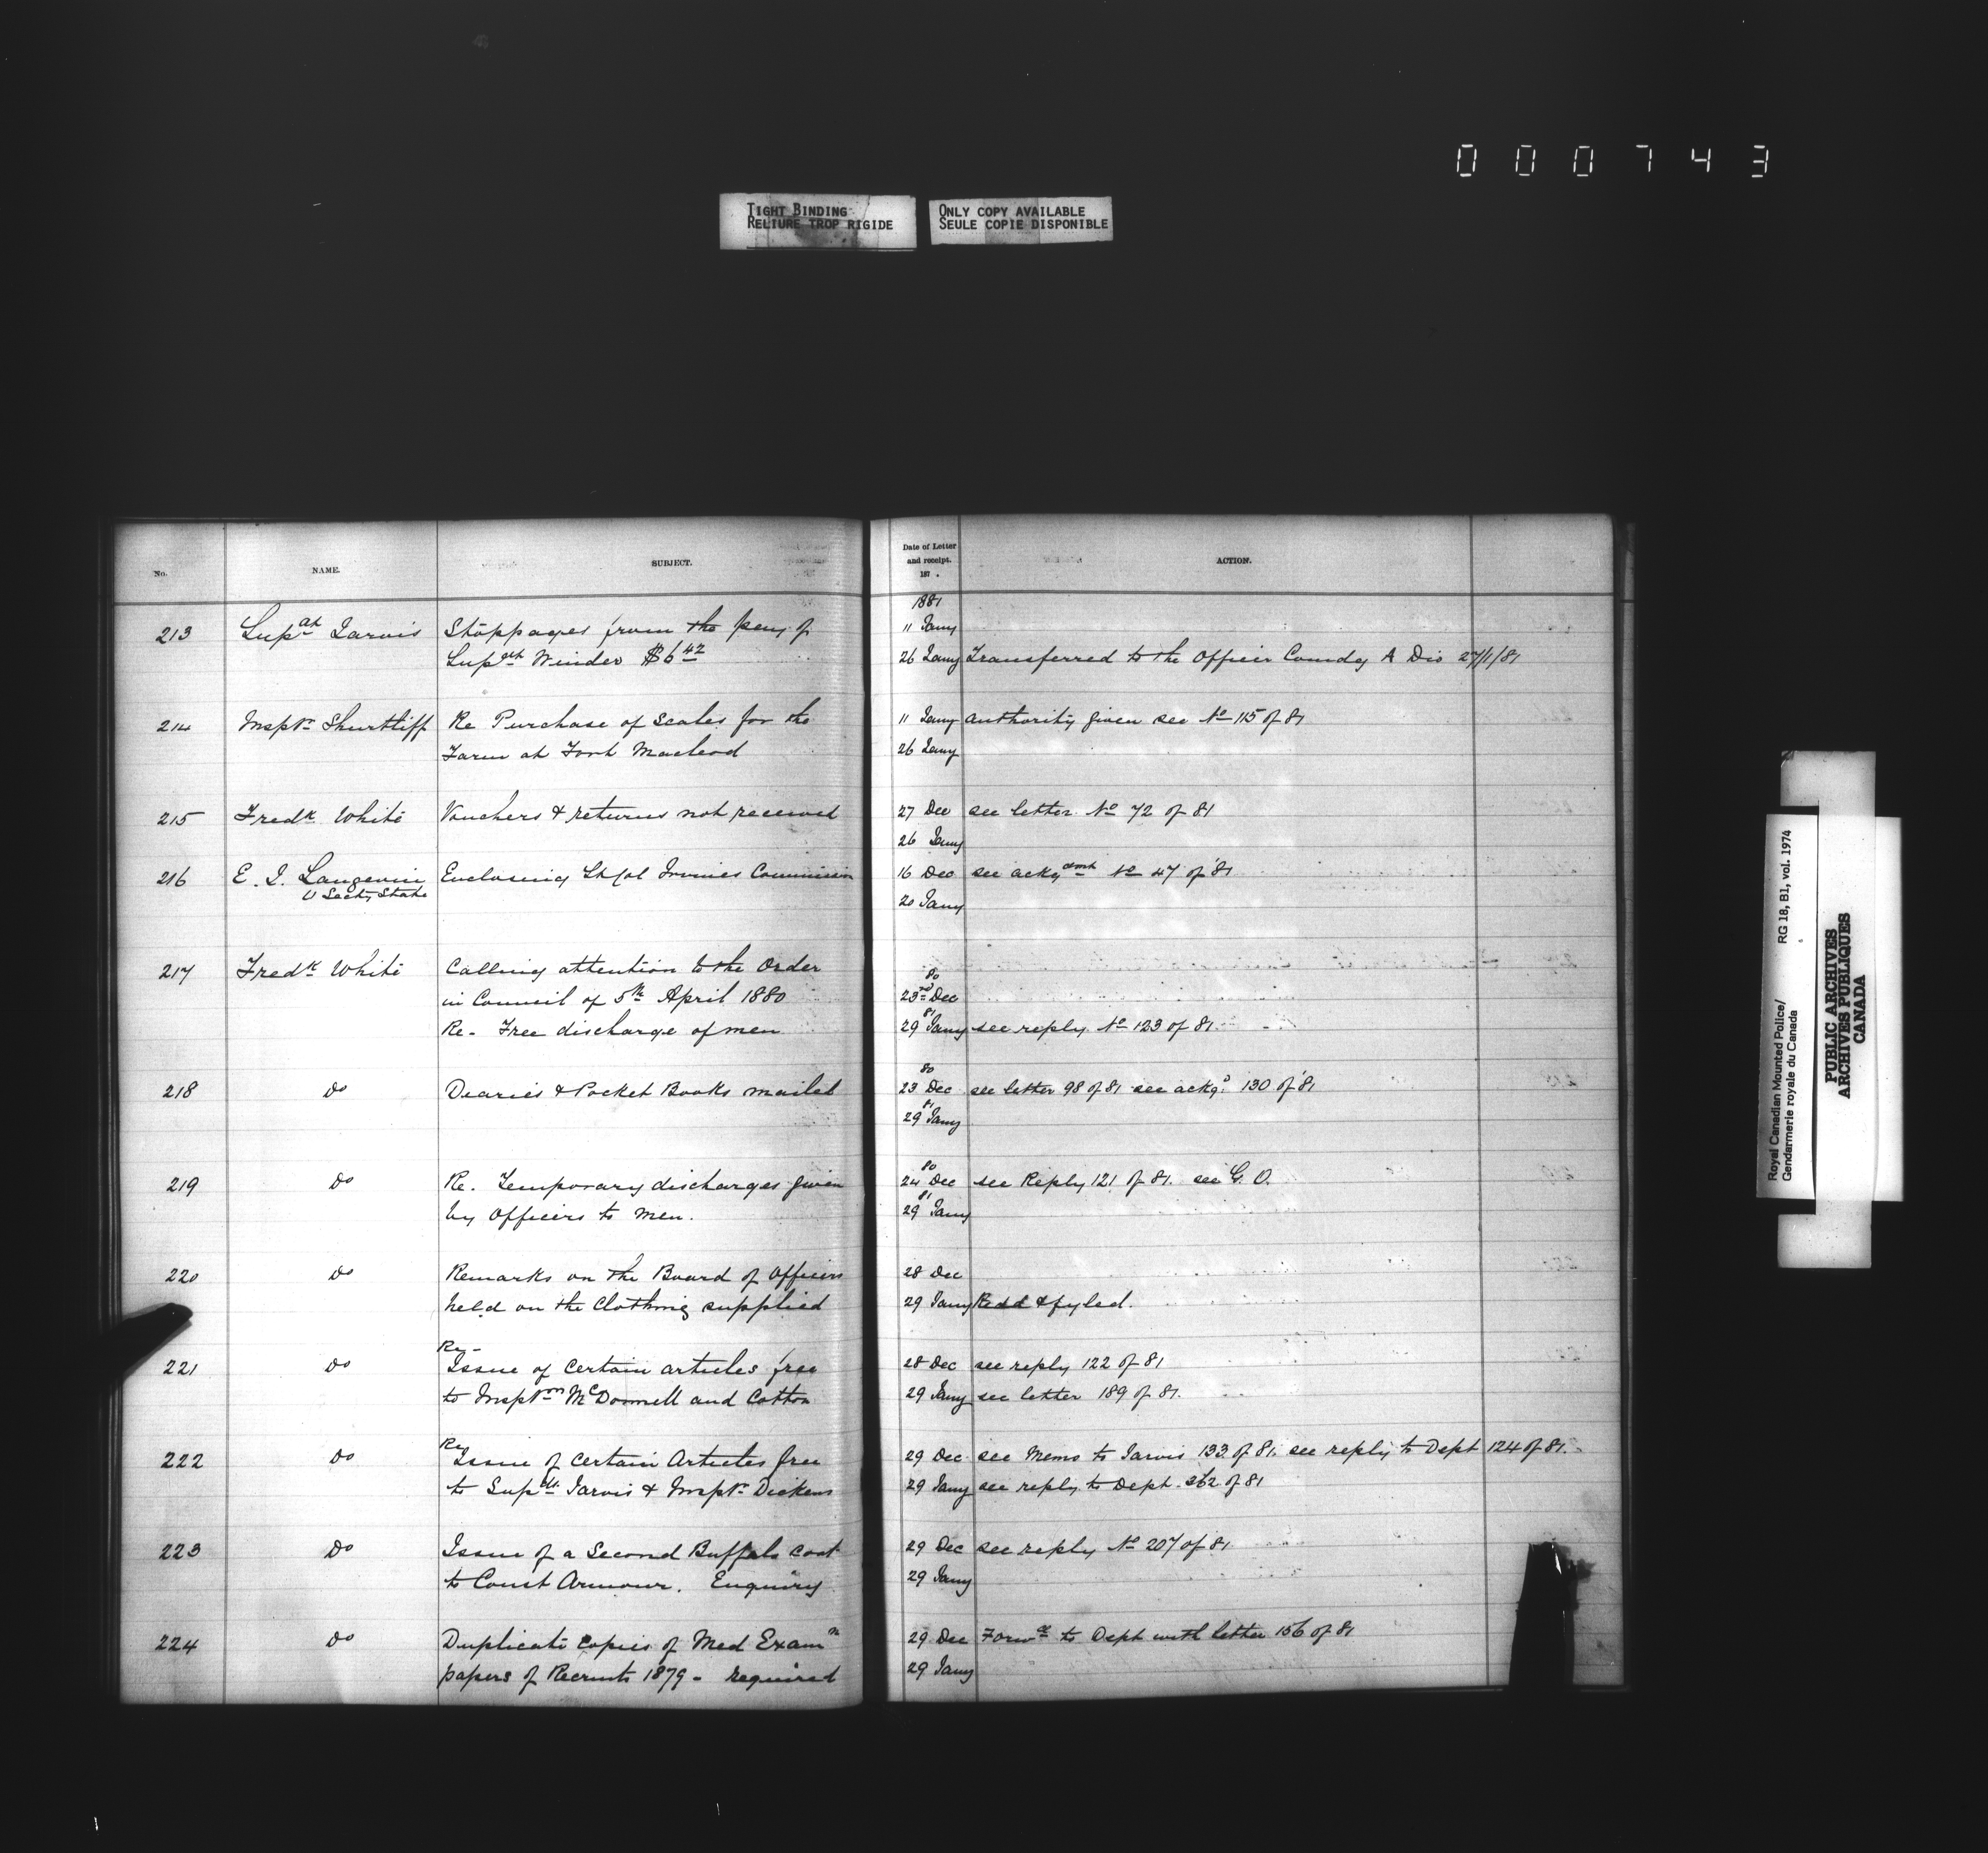 000743
TIGHT BINDING
RELIURE TROP RIGIDE
ONLY COPY AVAILABLE
SEULE COPIE DISPONIBLE
No. NAME. SUBJECT. Date of Letter and receipt. 187 . ACTION.
1881
213 Supdt Jarvis Stoppages from the pay of 11 Jany
Supdt Winder $6 42 26 Jany Transferred to the Officer Comdg A Div 27/1/81
214 Inspr Shurtliff Re Purchase of Scales for the 11 Jany authority given see No 115 of 81
Farm at Fort Macleod 26 Jany
215 Fredk White Vouchers & returns not received 27 Dec see letter No 72 of 81
26 Jany
216 E. J. Langevin Enclosing Lt Col Irvines Commission 16 Dec see ackgmt No 47 of 81
U Secty State 20 Jany
217 Fredk White Calling attention to the Order
in Council of 5th April 1880 80 23rd Dec
Re - Free discharge of men 81 29 Jany see reply No 123 of 81
218 Do Dearies & Pocket Books mailed 80 23 Dec see letter 98 of 81 see ackgd 130 of 81
81 29 Jany
219 Do Re. Temporary discharges given 80 24 Dec see Reply 121 of 81. see G. O.
by Officers to men. 81 29 Jany
220 Do Remarks on the Board of Officers 28 Dec
held on the Clothing supplied 29 Jany Redd & fyled.
Re -
221 Do Issue of certain articles free 28 Dec see reply 122 of 81
to Insptrs McDonnell and Cotton 29 Jany see letter 189 of 81.
Re
222 Do Issue of certain Articles free 29 Dec see Memo to Jarvis 133 of 81. see reply to Dept 124 of 81.
to Supdt Jarvis & Inspr Dickens 29 Jany see reply to Dept. 262 of 81
223 Do Issue of a Second Buffalo coat 29 Dec see reply No 207 of 81
to Const Armour. Enquiry 29 Jany
224 Do Duplicate copies of Med Examn 29 Dec Forwd to Dept with letter 156 of 81
papers of Recruits 1879 - required 29 Jany
Royal Canadian Mounted Police/ RG 18, B1, vol. 1974
Gendarmerie royale du Canada
PUBLIC ARCHIVES
ARCHIVES PUBLIQUES
CANADA